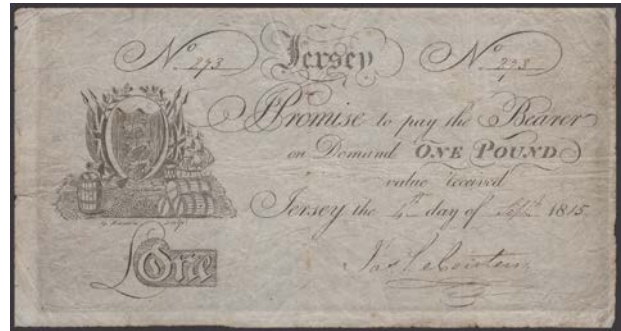 No 273 Jersey No 273
I Promise to pay the Bearer
on Demand ONE POUND
value received
Jersey the 4th day of Septr 1815
£One